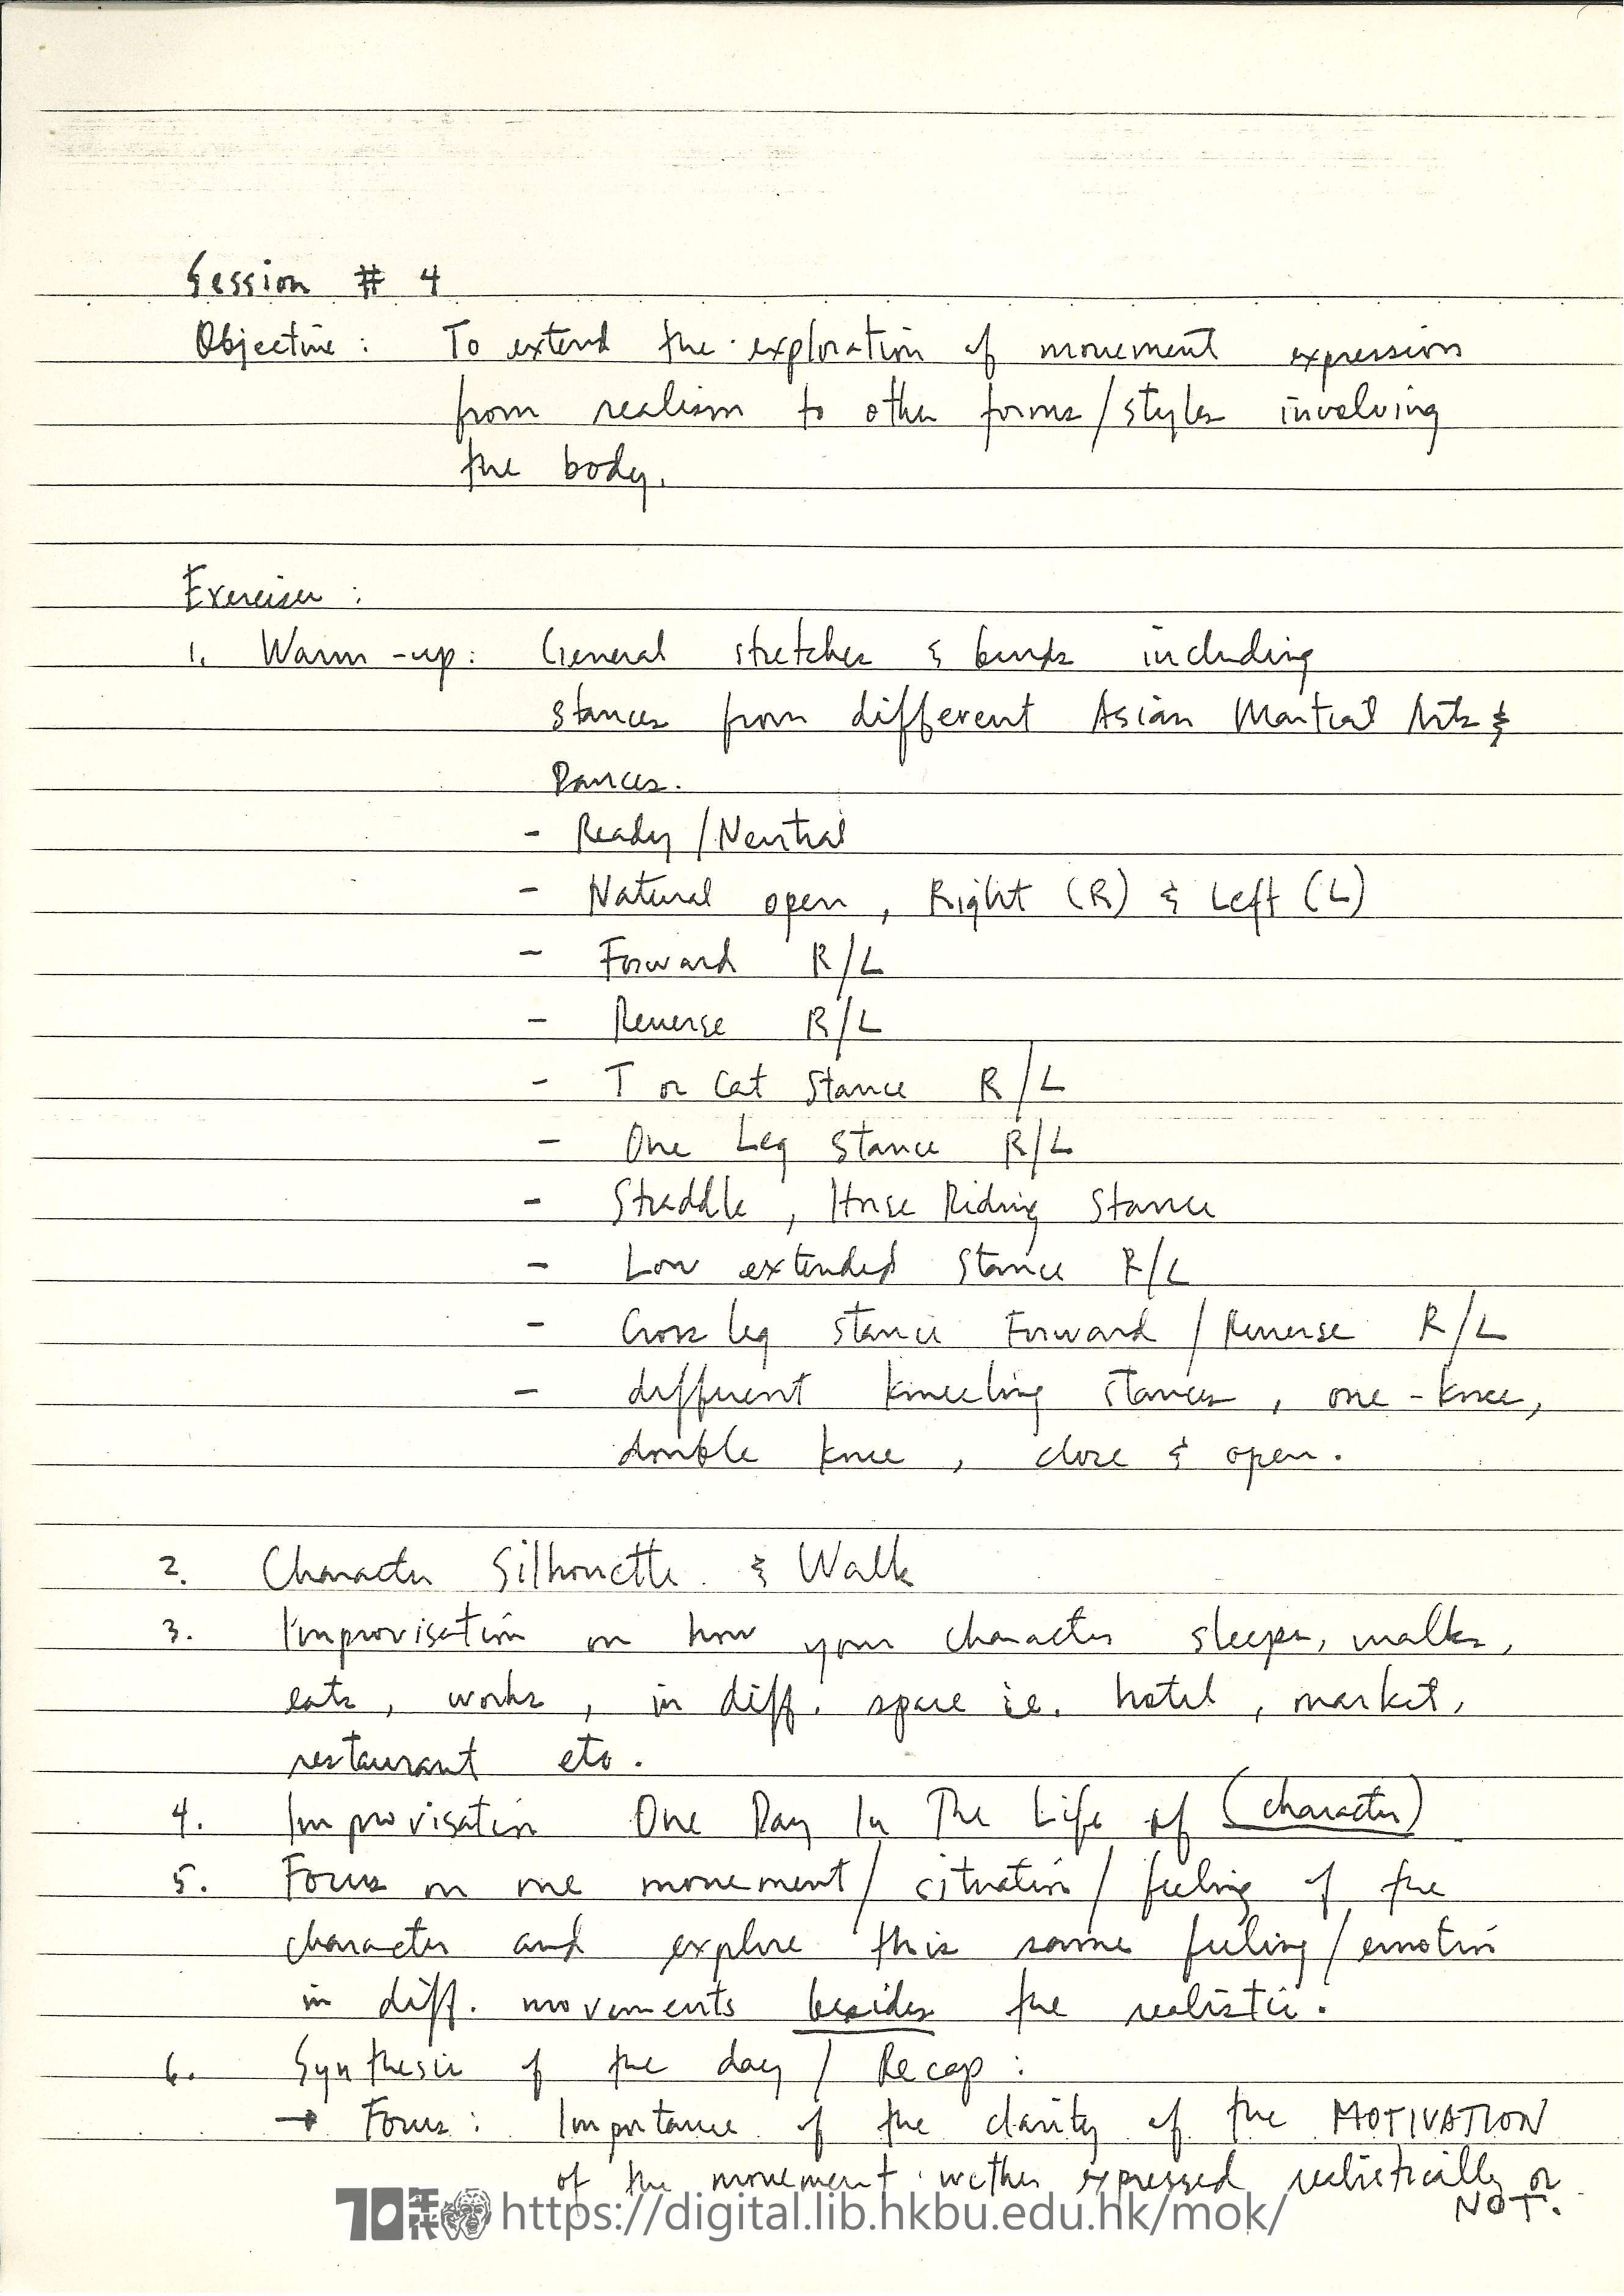 Session # 4
Objective : To extend the exploration of movement expression
from realism to other forms/styles involving
the body.
Exercises :
1. Warm-up : General stretches & bends including
stances from different Asian Martial Arts &
Dances.
- Ready / Neutral
- Natural open , Right (R) & Left (L)
- Forward R/L
- Reverse R/L
- T or Cat Stance R/L
- One Leg Stance R/L
- Straddle , Horse Riding Stance
- Low extended Stance R/L
- Cross leg stance Forward / Reverse R/L
- different kneeling stances , one-knee,
double knee , close & open.
2. Character Silhouette & Walk
3. Improvisation on how your character sleeps, walks,
eats , works , in diff. space ie. hotel , market,
restaurant etc.
4. Improvisation One Day In The Life of (character)
5. Focus on one movement / situation / feeling of the
character and explore this same feeling / emotion
in diff. movements besides the realistic.
6. Synthesis of the day / Recap :
→ Focus : Importance of the clarity of the MOTIVATION
of the movement wether expressed realistically or
NOT.
70年代 https://digital.lib.hkbu.edu.hk/mok/